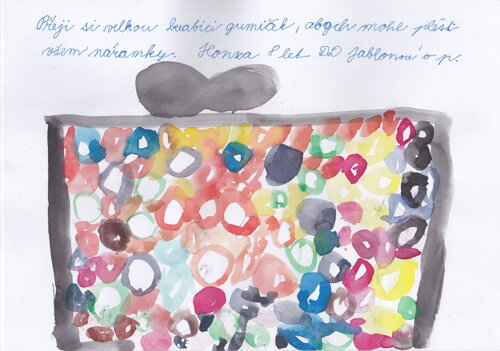 Přeji si velkou krabici gumiček, abych mohl plést
všem náramky. Honza 8 let DD Jablonné v p.